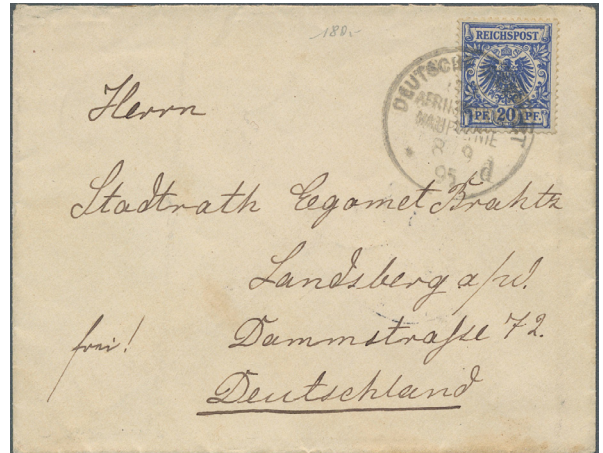 180.-
REICHSPOST
PF. 20 PF.
DEUTSCHE
AFRIK
HAUPT NIE
8 9
95 d
Herrn
Stadtrath Egomet Brahtz
Landsberg a/w.
frei!
Dammstraße 72.
Deutschland